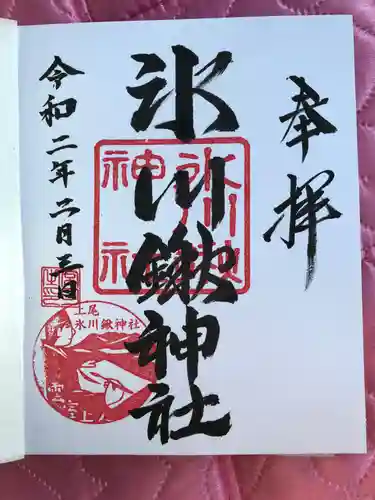 奉拝
氷川鍬神社
令和二年二月三日
氷川神社
上尾
氷川鍬神社